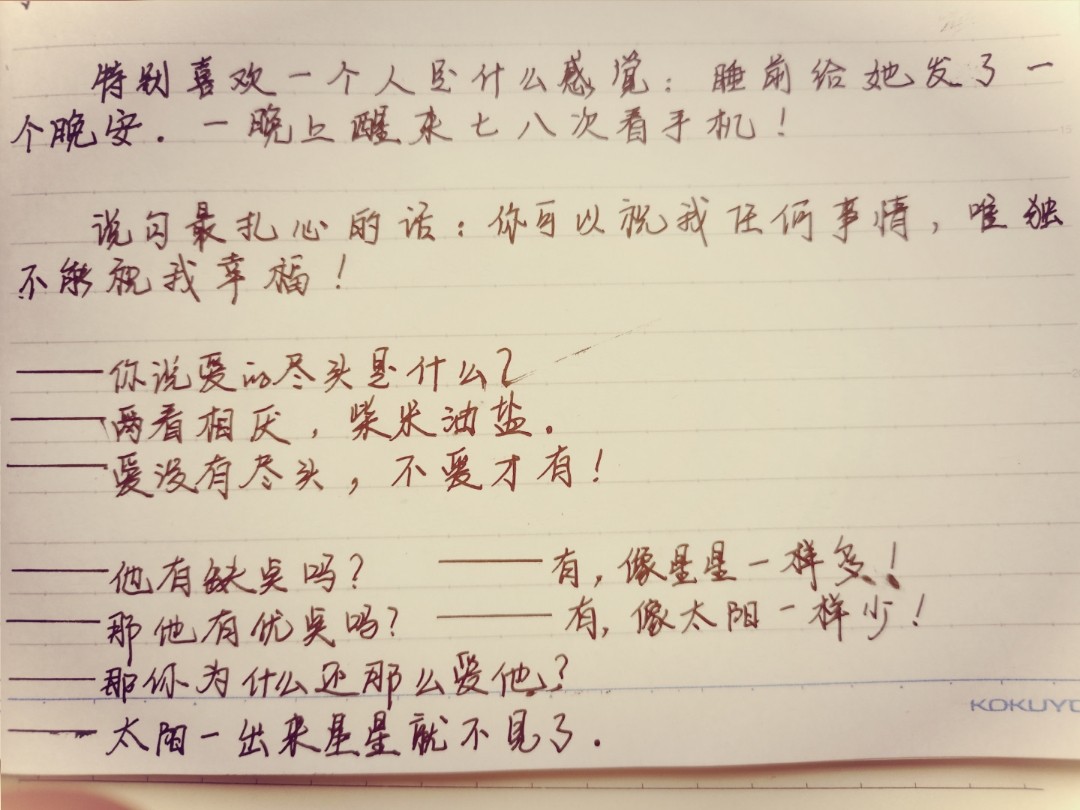 特别喜欢一个人是什么感觉：睡前给她发了一
个晚安．一晚上醒来七八次看手机！
说句最扎心的话：你可以祝我任何事情，唯独
不能祝我幸福！
——你说爱的尽头是什么？
——两看相厌，柴米油盐．
——爱没有尽头，不爱才有！
——他有缺点吗？ ——有，像星星一样多！
——那他有优点吗？ ——有，像太阳一样少！
——那你为什么还那么爱他？
KOKUYO
——太阳一出来星星就不见了．